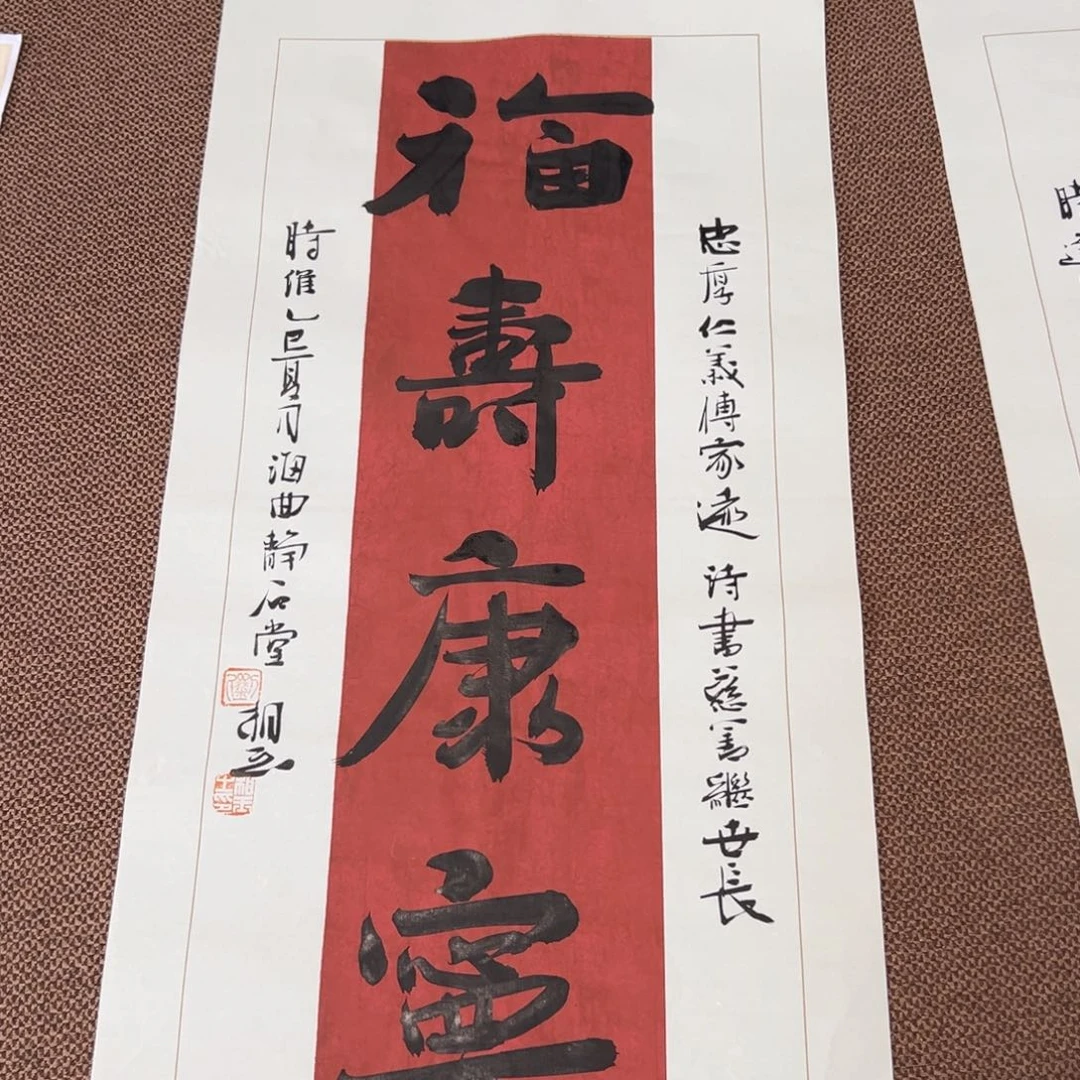 福壽康寧
忠厚仁義傳家遠 诗書慈善繼世長
時維乙巳夏月海曲静石堂
時